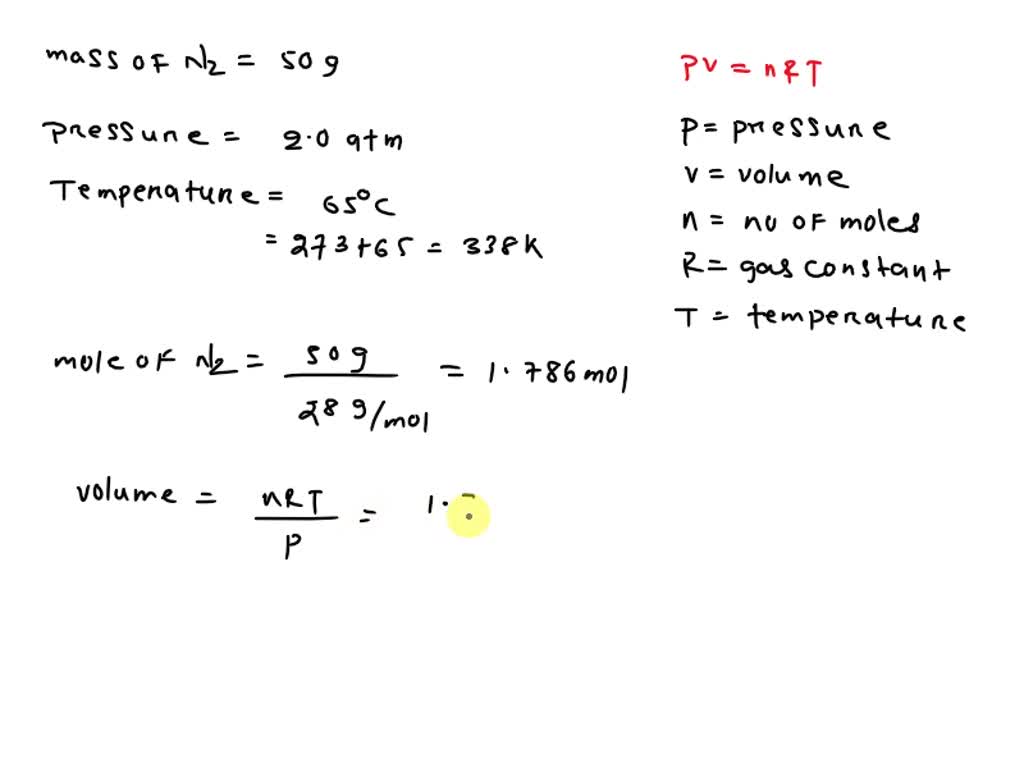 mass of N2 = 50 g
pressure = 2.0 atm
Temperature = 65°C
= 273+65 = 338K
mole of N2 = 50 g / 28 g/mol = 1.786 mol
volume = nRT / P = 1.
PV = nRT
P = pressure
V = volume
n = no of moles
R = gas constant
T = temperature